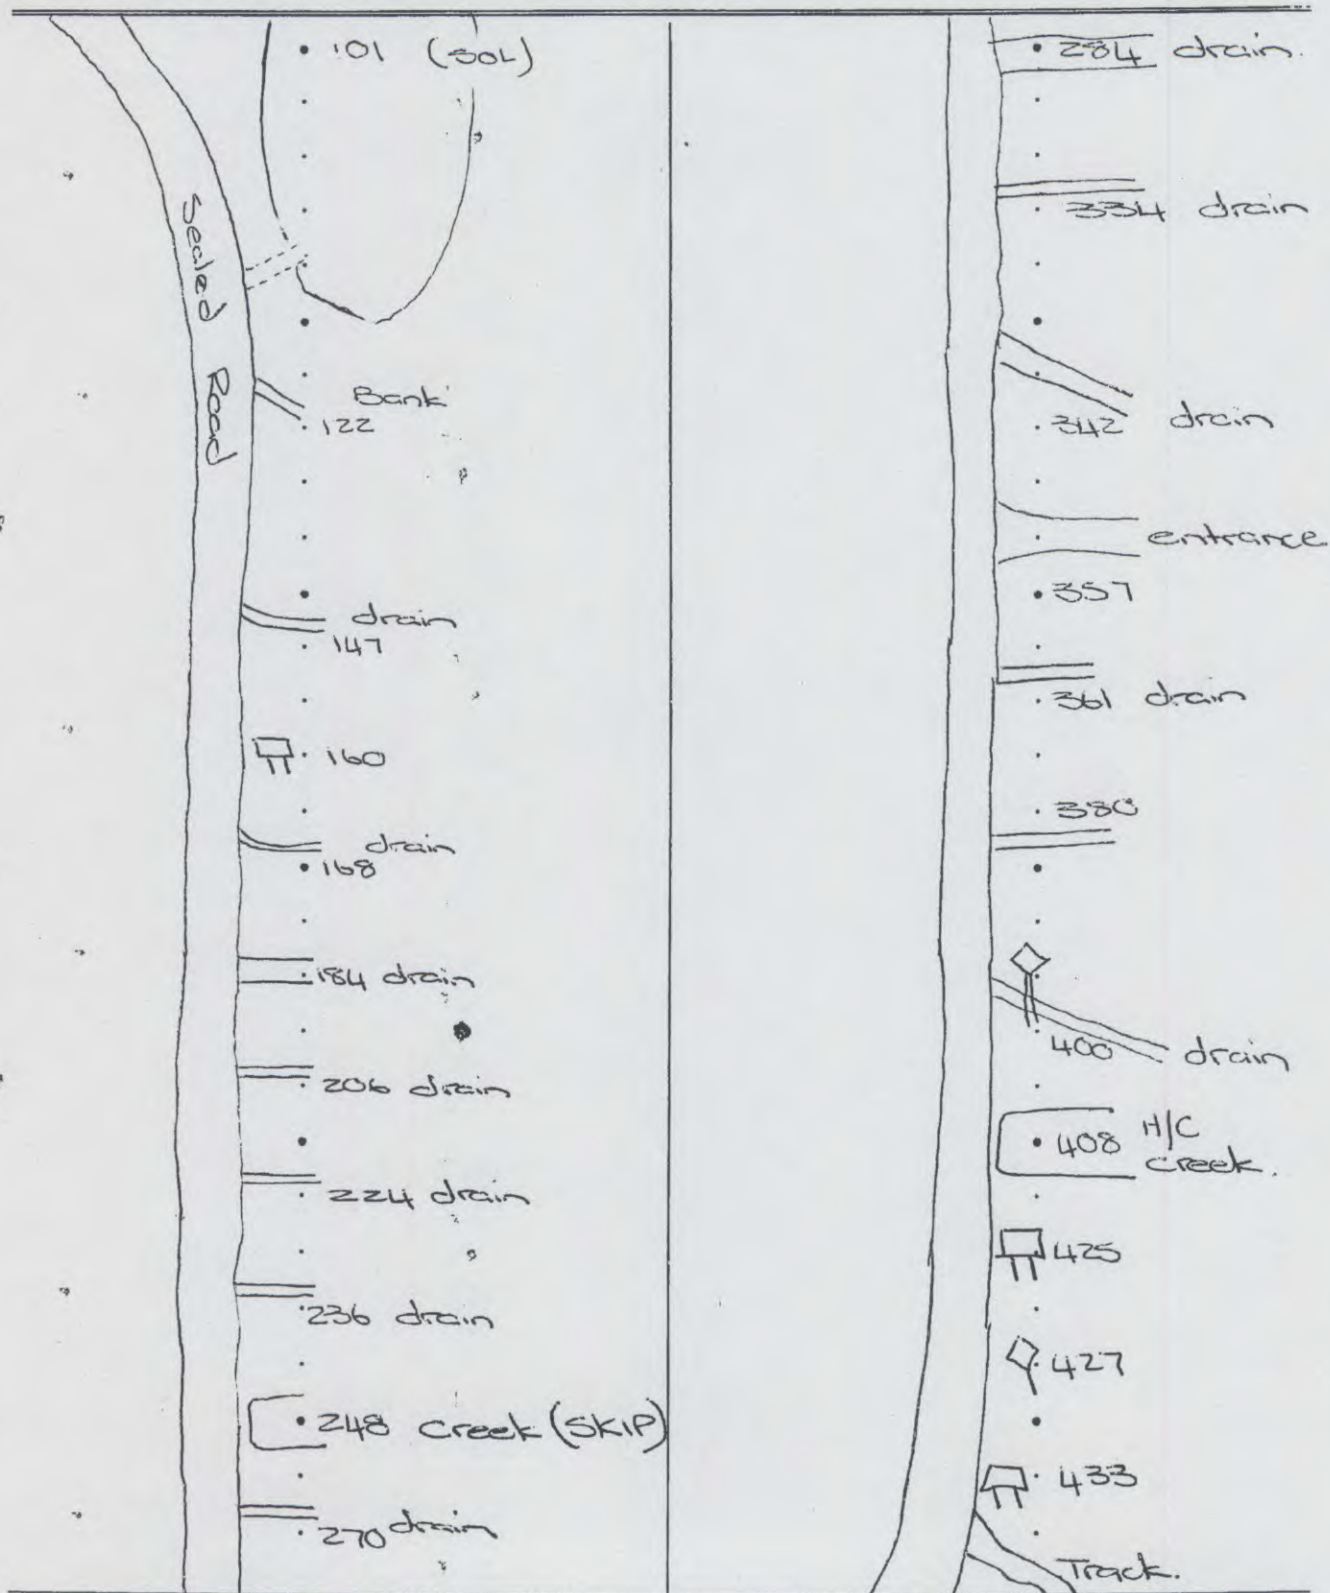 101 (SOL)
Sealed Road
Bank
122
drain
147
160
drain
168
184 drain
206 drain
224 drain
236 drain
248 Creek (SKIP)
270 drain
284 drain.
334 drain
342 drain
entrance
357
361 drain
380
400 drain
408 H/C
Creek.
425
427
433
Track.